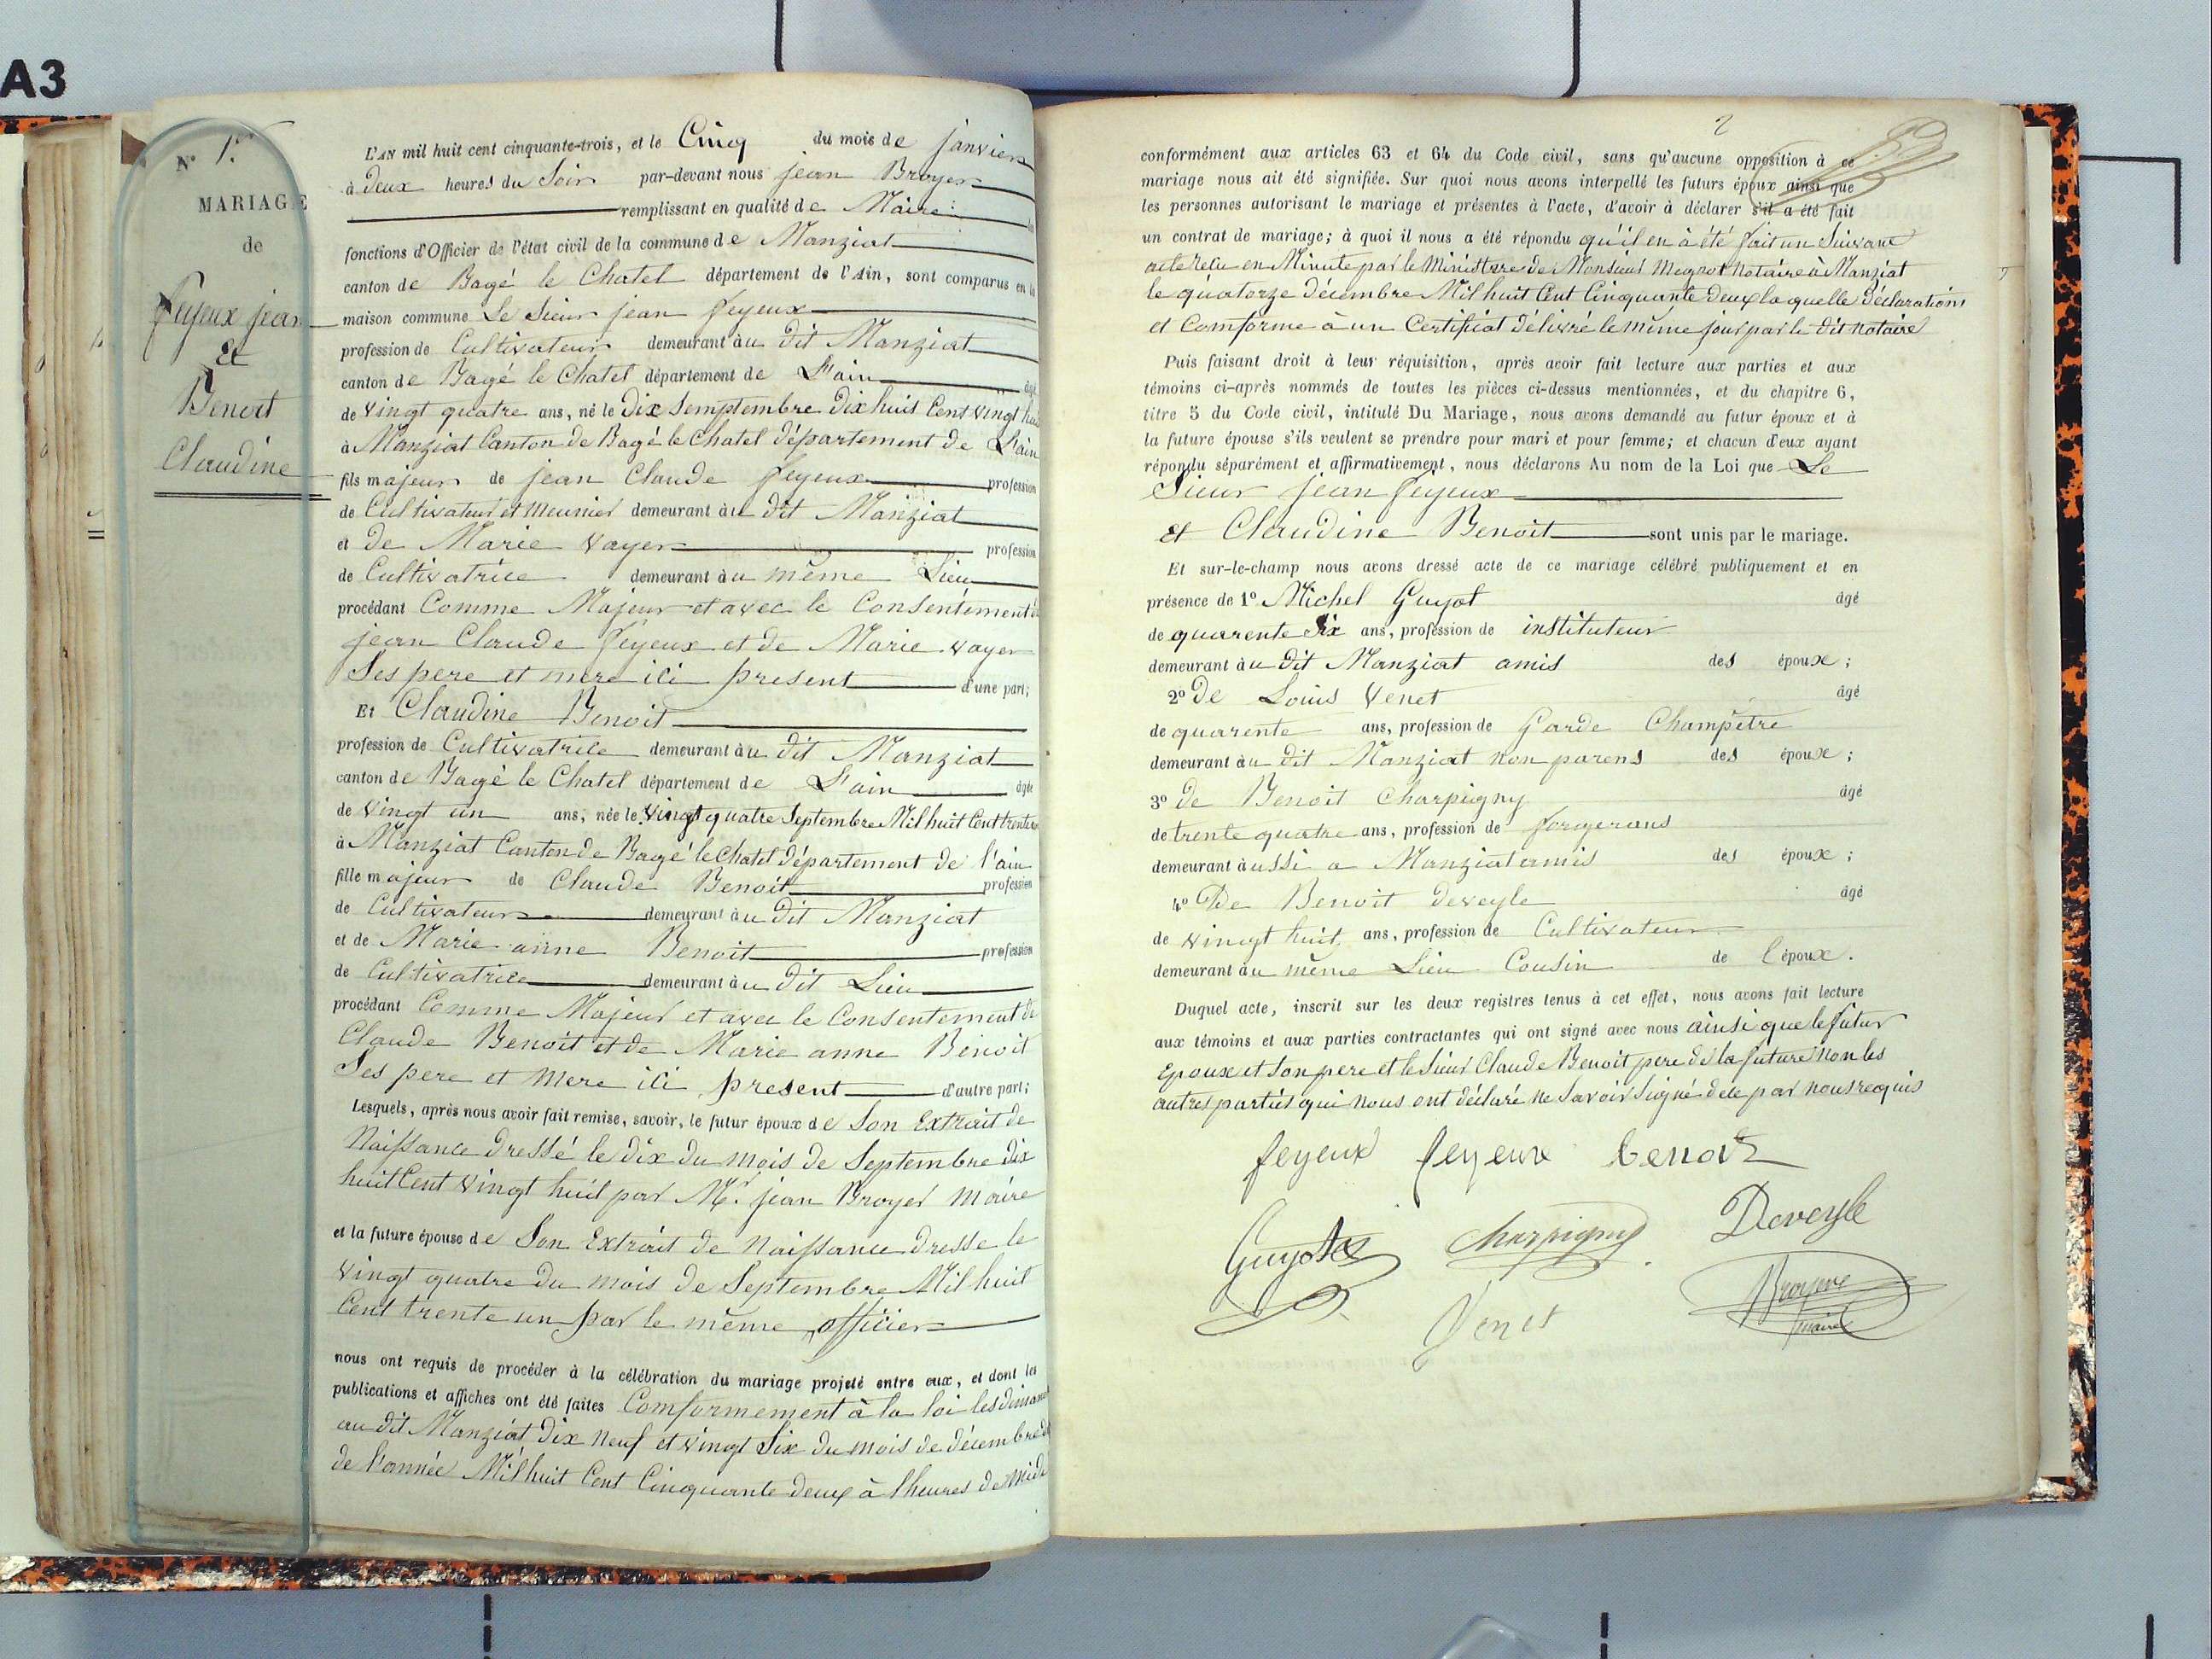 A3
N° 1er
MARIAGE
de
feyeux jean
Et
Benoit
Claudine
L'AN mil huit cent cinquante-trois, et le Cinq du mois de janvier
à deux heures du Soir par-devant nous jean Broyer
remplissant en qualité de Maire
fonctions d'Officier de l'état civil de la commune de Manziat
canton de Bagé le Chatel département de l'Ain, sont comparus en la
maison commune Le Sieur jean feyeux
profession de Cultivateur demeurant à u dit Manziat
canton de Bagé le Chatel département de L'ain âgé
de Vingt quatre ans, né le Dix Semptembre Dix huit Cent Vingt huit
à Manziat Canton de Bagé le Chatel département de L'ain
fils majeur de jean Claude feyeux profession
de Cultivateur et Meunier demeurant à u dit Manziat
et de Marie Vayer profession
de Cultivatrice demeurant à u même Lieu
procédant Comme Majeur et avec le Consentement de
jean Claude feyeux et de Marie Vayer
Ses pere et mere ici present d'une part;
Et Claudine Benoit
profession de Cultivatrice demeurant à u dit Manziat
canton de Bagé le Chatel département de L'ain âgée
de Vingt un ans, née le Vingt quatre Septembre Mil huit Cent trente un
à Manziat Canton de Bagé le Chatel département de l'ain
fille majeur de Claude Benoit profession
de Cultivateur demeurant à u dit Manziat
et de Marie anne Benoit profession
de Cultivatrice demeurant à u dit Lieu
procédant Comme Majeur et avec le Consentement de
Claude Benoit et de Marie anne Benoit
Ses pere et Mere ici present d'autre part;
Lesquels, après nous avoir fait remise, savoir, le futur époux de Son Extrait de
Naissance dressé le dix du mois de Septembre dix
huit Cent Vingt huit par Mr. jean Broyer Maire
et la future épouse de Son Extrait de Naissance dresse le
Vingt quatre du mois de Septembre Mil huit
Cent trente un par le même officier
nous ont requis de procéder à la célébration du mariage projeté entre eux, et dont les
publications et affiches ont été faites Comformement à la loi les dimanches
au dit Manziat dix Neuf et Vingt Six du mois de décembre
de l'année Mil huit Cent Cinquante deux à l'heures de Midi
2
conformément aux articles 63 et 64 du Code civil, sans qu'aucune opposition à ce
mariage nous ait été signifiée. Sur quoi nous avons interpellé les futurs époux ainsi que
les personnes autorisant le mariage et présentes à l'acte, d'avoir à déclarer s'il a été fait
un contrat de mariage; à quoi il nous a été répondu qu'il en à été fait un Suivant
acte Resu en Minute par le Ministere de Monsieur Meynot Notaire à Manziat
le quatorze décembre Mil huit Cent Cinquante deux la quelle déclaration
et Comforme à un Certificat délivré le même jour par le dit notaire
Puis faisant droit à leur réquisition, après avoir fait lecture aux parties et aux
témoins ci-après nommés de toutes les pièces ci-dessus mentionnées, et du chapitre 6,
titre 5 du Code civil, intitulé Du Mariage, nous avons demandé au futur époux et à
la future épouse s'ils veulent se prendre pour mari et pour femme; et chacun d'eux ayant
répondu séparément et affirmativement, nous déclarons Au nom de la Loi que Le
Sieur jean feyeux
Et Claudine Benoit sont unis par le mariage.
Et sur-le-champ nous avons dressé acte de ce mariage célébré publiquement et en
présence de 1° Michel Guyot âgé
de quarente Six ans, profession de instituteur
demeurant à u dit Manziat amis des époux;
2° de Louis Venet âgé
de quarente ans, profession de Garde Champêtre
demeurant à u dit Manziat non parens des époux;
3° de Benoit Charpigny âgé
de trente quatre ans, profession de forgerans
demeurant à ussi a Manziat amis des époux;
4° De Benoit deveyle âgé
de vingt huit ans, profession de Cultivateur
demeurant à u même Lieu Cousin de l'époux.
Duquel acte, inscrit sur les deux registres tenus à cet effet, nous avons fait lecture
aux témoins et aux parties contractantes qui ont signé avec nous ainsi que le futur
Epoux et Son pere et le Sieur Claude Benoit pere de la future Non les
autres parties qui Nous ont déclaré ne Savoir Signé de ce par nous requis
feyeux feyeux benoit
Guyot Charpigny Deveyle
Venet Broyer
maire